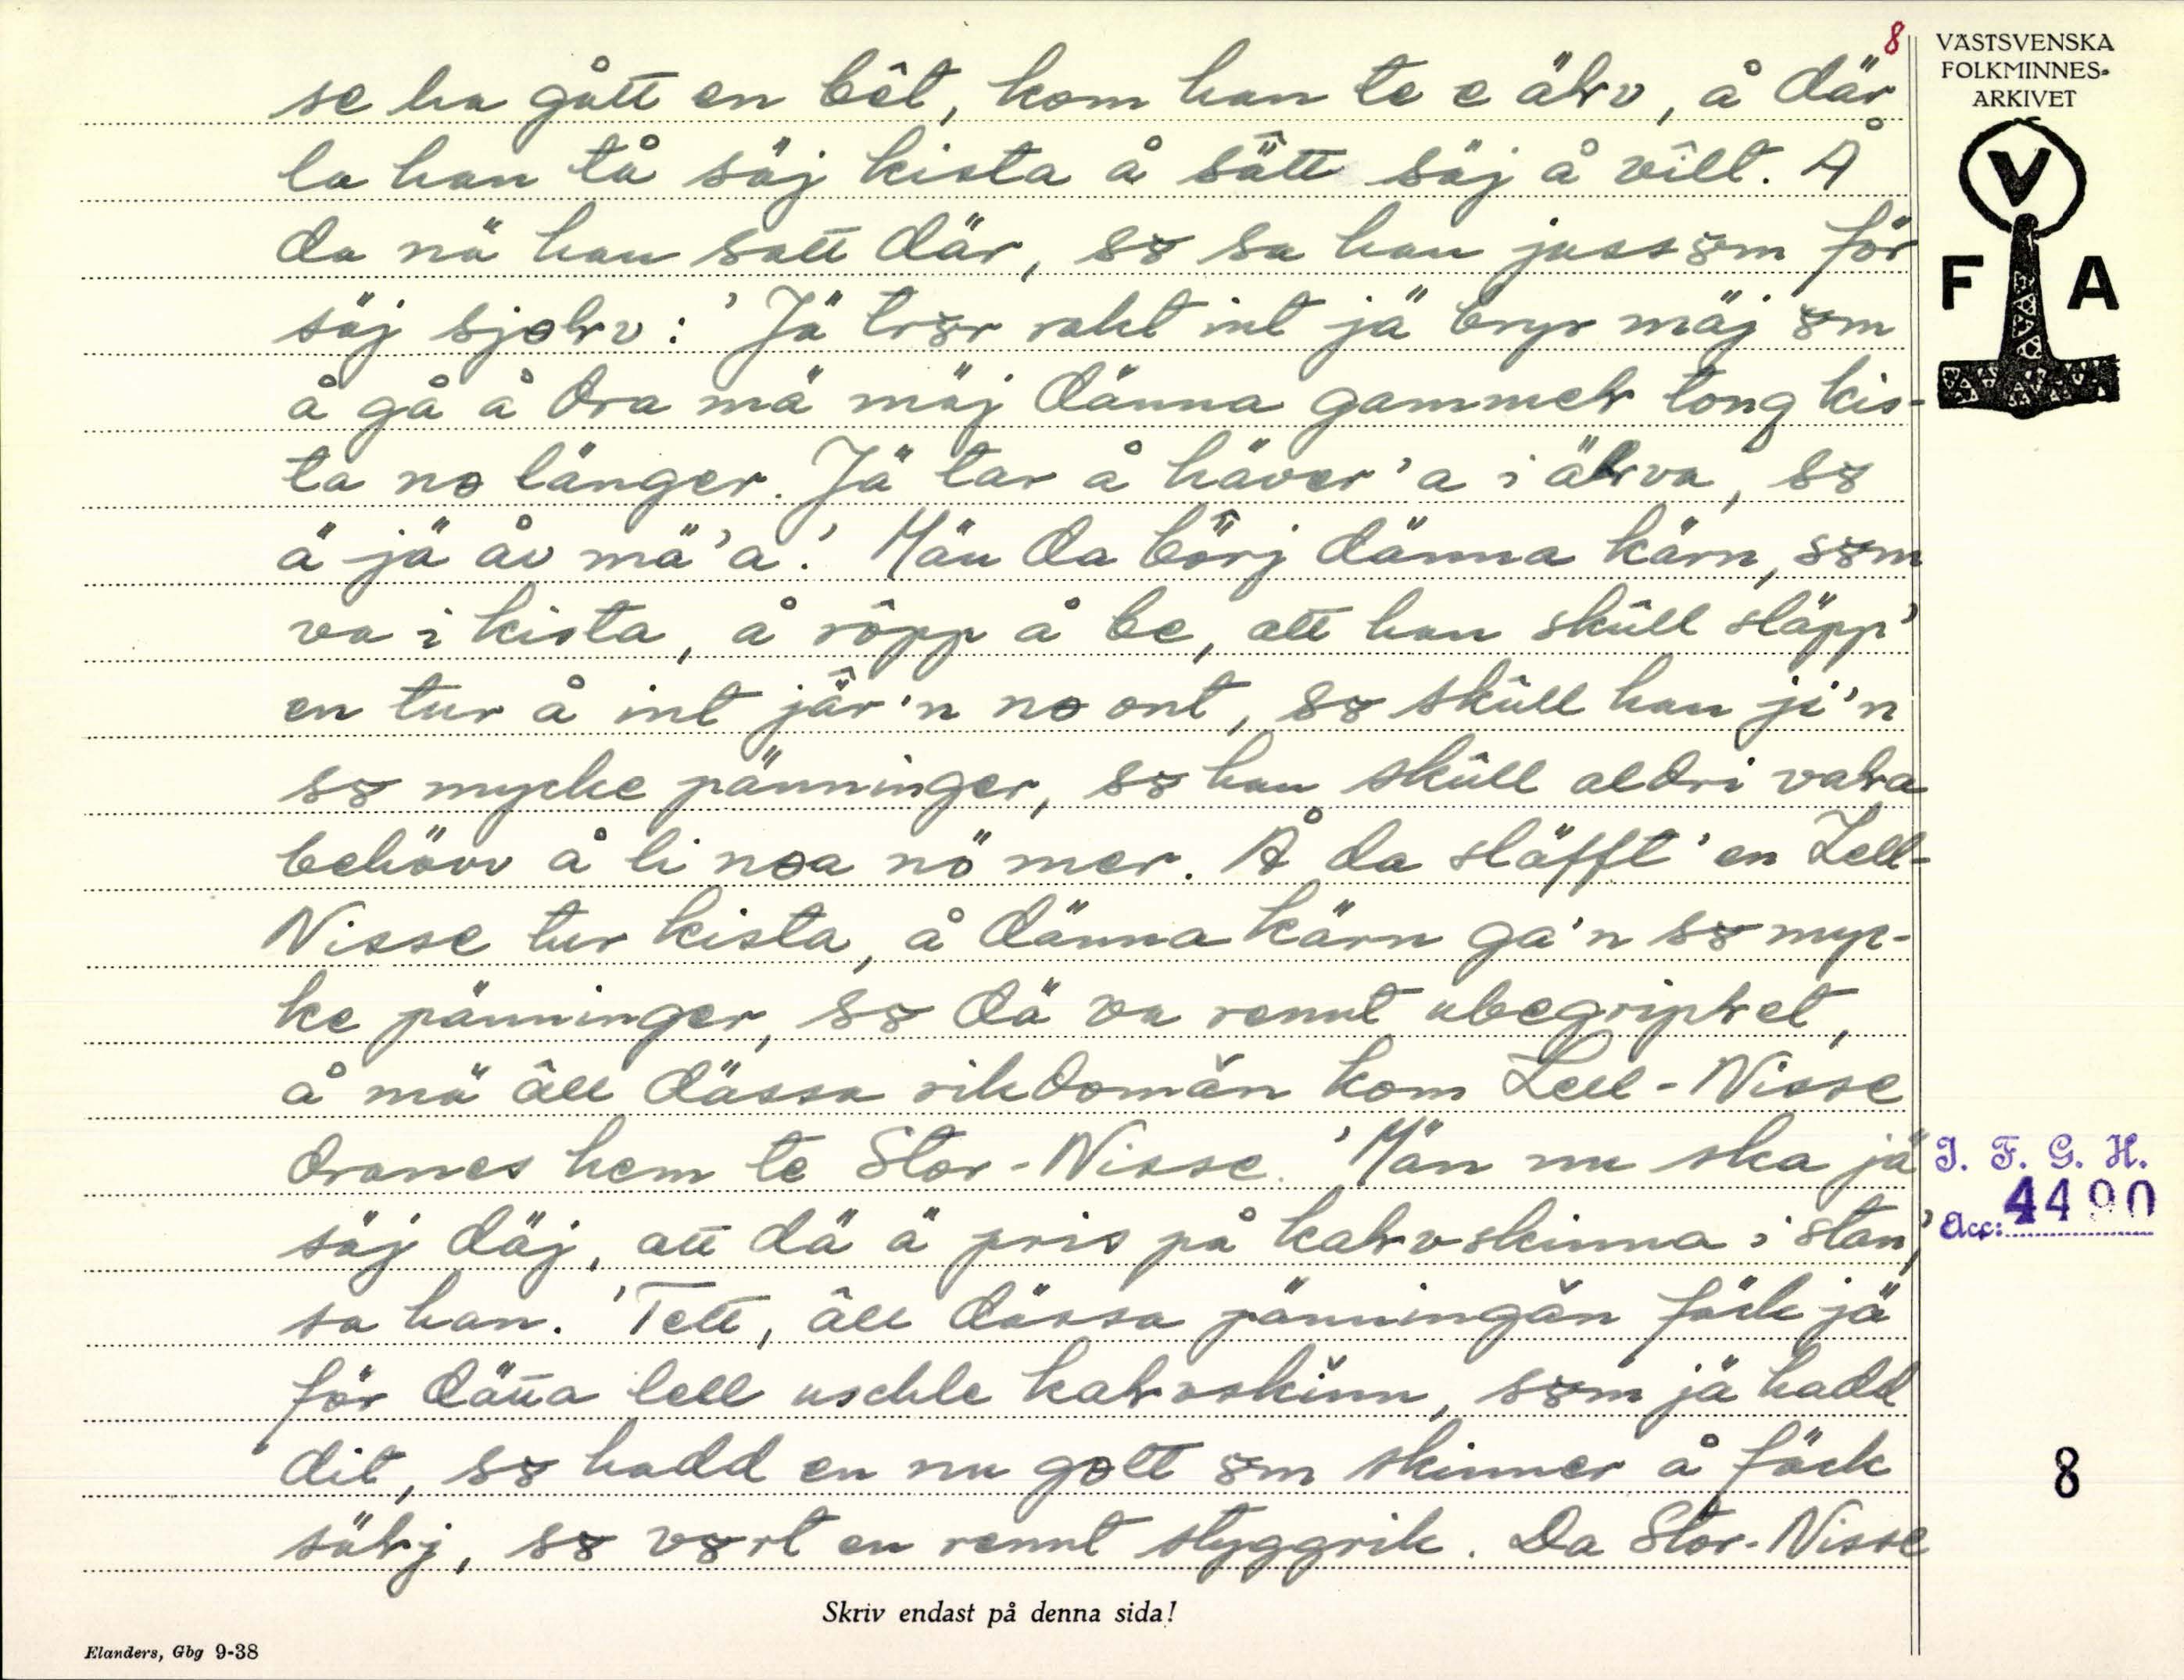 8
VÄSTSVENSKA
FOLKMINNES-
ARKIVET
V
F A
se ha gått en bêt, kom han te e älv, å där
la han tå säj kista å sätt säj å vîlt. Å
da nä han satt där, s8 sa han jass8m för
säj sjəlv: 'Jä tr8r rakt int jä bryr mäj 8m
å gå å dra mä mäj dänna gammel tong kis-
ta nə länger. Jä tar å häver'a i älva, s8
ä jä åv mä'a.' Män da börj dänna kärn, s8m
va i kista, å rôpp å be, att han skûll släpp'
en tur å int jâr'n nə ont, s8 skûll han ji'n
s8 mycke pänninger, s8 han skûll aldri vala
behövv å li nəa nö mer. Å da släfft'en Lell-
Nisse tur kista, å dänna kärn ga'n s8 myc-
ke pänninger, s8 dä va rennt ubegriplet,
å mä âll dässa rikdomän kom Lell-Nisse
dranes hem te Stor-Nisse. 'Män nu ska jä
säj däj, att dä ä pris på kalvskinna i stan,'
sa han. 'Tett, âll dässa pänningän fäck jä
för däña lell uschle kalvskinn, s8m jä hadd
dit, s8 hadd en nu gətt 8m skinner å fäck
sälj, s8 v8rt en rennt styggrik. Da Stor-Nisse
I. F. G. H.
Acc: 4490
8
Skriv endast på denna sida!
Elanders, Gbg 9-38